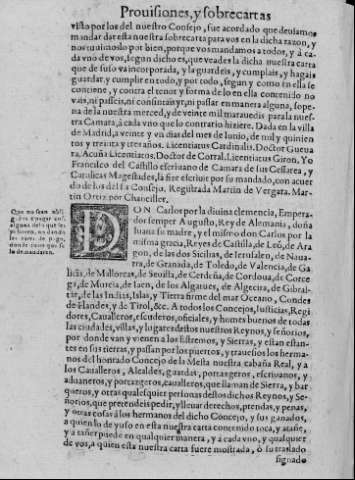 Prouisiones, y sobrecartas
visto por los del nuestro Consejo, fue acordado que deuiamos
mandar dar esta nuestra sobrecarta para vos en la dicha razon, y
nos tuuimoslo por bien, porque vos mandamos a todos, y à ca-
da vno de vos, segun dicho es, que veades la dicha nuestra carta
que de suso va incorporada, y la guardeis, y cumplais, y hagais
guardar, y cumplir en todo, y por todo, segun y como en ella se
contiene, y contra el tenor y forma de lo en ella contenido no
vais, ni passeis, ni consintais yr, ni passar en manera alguna, sope-
na de la nuestra merced, y de veinte mil marauedis para la nues-
tra Camara, à cada vno que lo contrario hiziere. Dada en la villa
de Madrid, a veinte y vn dias del mes de Iunio, de mil y quinien
tos y treinta y tres años. Licenciatus Cardinalis. Doctor Gueua
ra. Acuña Licenciatus. Doctor de Corral. Licentiatus Giron. Yo
Francisco del Castillo escriuano de Camara de sus Cessarea, y
Catolicas Magestades, la fize escriuir por su mandado, con acuer
do de los del su Consejo. Registrada Martin de Vergara. Mar-
tin Ortiz por Chanciller.
DON Carlos por la diuina clemencia, Empera-
dor semper Augusto, Rey de Alemania, doña
Iuana su madre, y el mismo don Carlos por la
misma gracia, Reyes de Castilla, de Leõ, de Ara
gon, de las dos Sicilias, de Ierusalen, de Naua-
rra, de Granada, de Toledo, de Valencia, de Ga
licia, de Mallorcas, de Seuilla, de Cerdeña, de Cordoua, de Corce
ga, de Murcia, de Iaen, de los Algarues, de Algecira, de Gibral-
tar, de las Indias, Islas, y Tierra firme del mar Oceano, Condes
de Flandes, y de Tirol, &c. A todos los Concejos, Iusticias, Regi
dores, Caualleros, escuderos, oficiales, y homes buenos de todas
las ciudades, villas, y lugares destos nuestros Reynos, y señorios,
por donde van y vienen a los Estremos, y Sierras, y estan estan-
tes en sus tierras, y passan por los puertos, y trauiesos los herma-
nos del honrado Concejo de la Mesta nuestra cabaña Real, y a
los Caualleros, Alcaldes, guardas, portazgeros, escriuanos, y
aduaneros, y portazgeros, caualleros, que llaman de Sierra, y bar
queros, y otras qualesquier personas destos dichos Reynos, y Se-
ñorios, que pretendeis pedir, y lleuar derechos, prendas, y penas,
y otras cosas à los hermanos del dicho Concejo, y sus ganados,
a quien lo de yuso en esta nuestra carta contenido toca, y atañe,
y atañer puede en qualquier manera, y à cada vno, y qualquier
de vos, a quien esta nuestra carta fuere mostrada, ò su traslado
signado